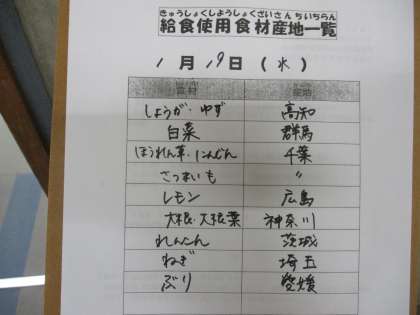 きゅうしょくしようしょくざいさんちいちらん
給食使用食材産地一覧
1月19日(水)
食材 産地
しょうが・ゆず 高知
白菜 群馬
ほうれん草・にんじん 千葉
さつまいも 〃
レモン 広島
大根・大根葉 神奈川
れんこん 茨城
ねぎ 埼玉
ぶり 愛媛